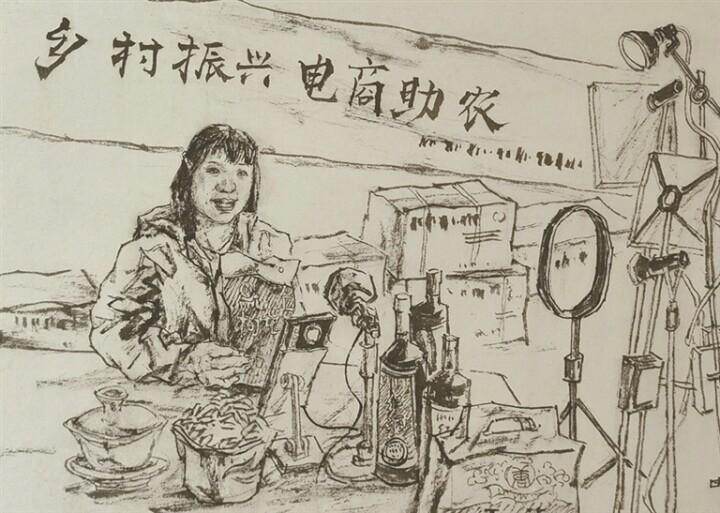 乡村振兴 电商助农